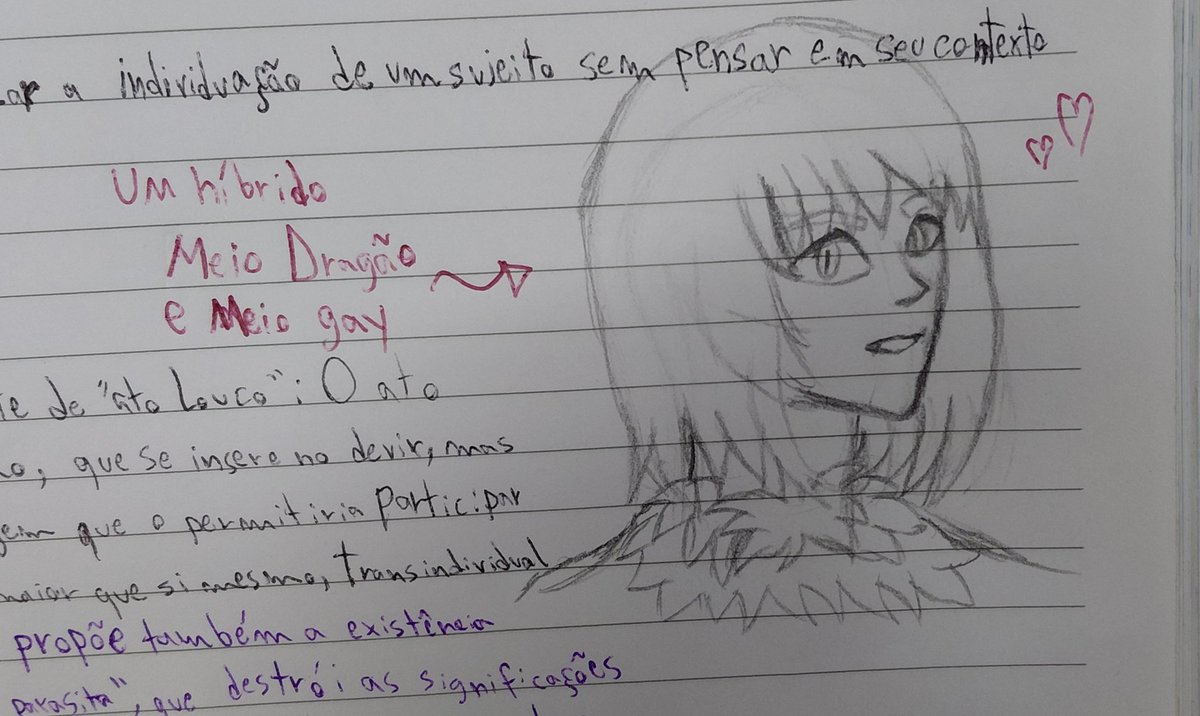 a individuação de um sujeito sem pensar em seu contexto
Um híbrido
Meio Dragão
e Meio gay
de "ato Louco": O ato
, que se insere no devir, mas
que o permitiria participar
maior que si mesmo, transindividual
propõe também a existência
parasita", que destrói as significações